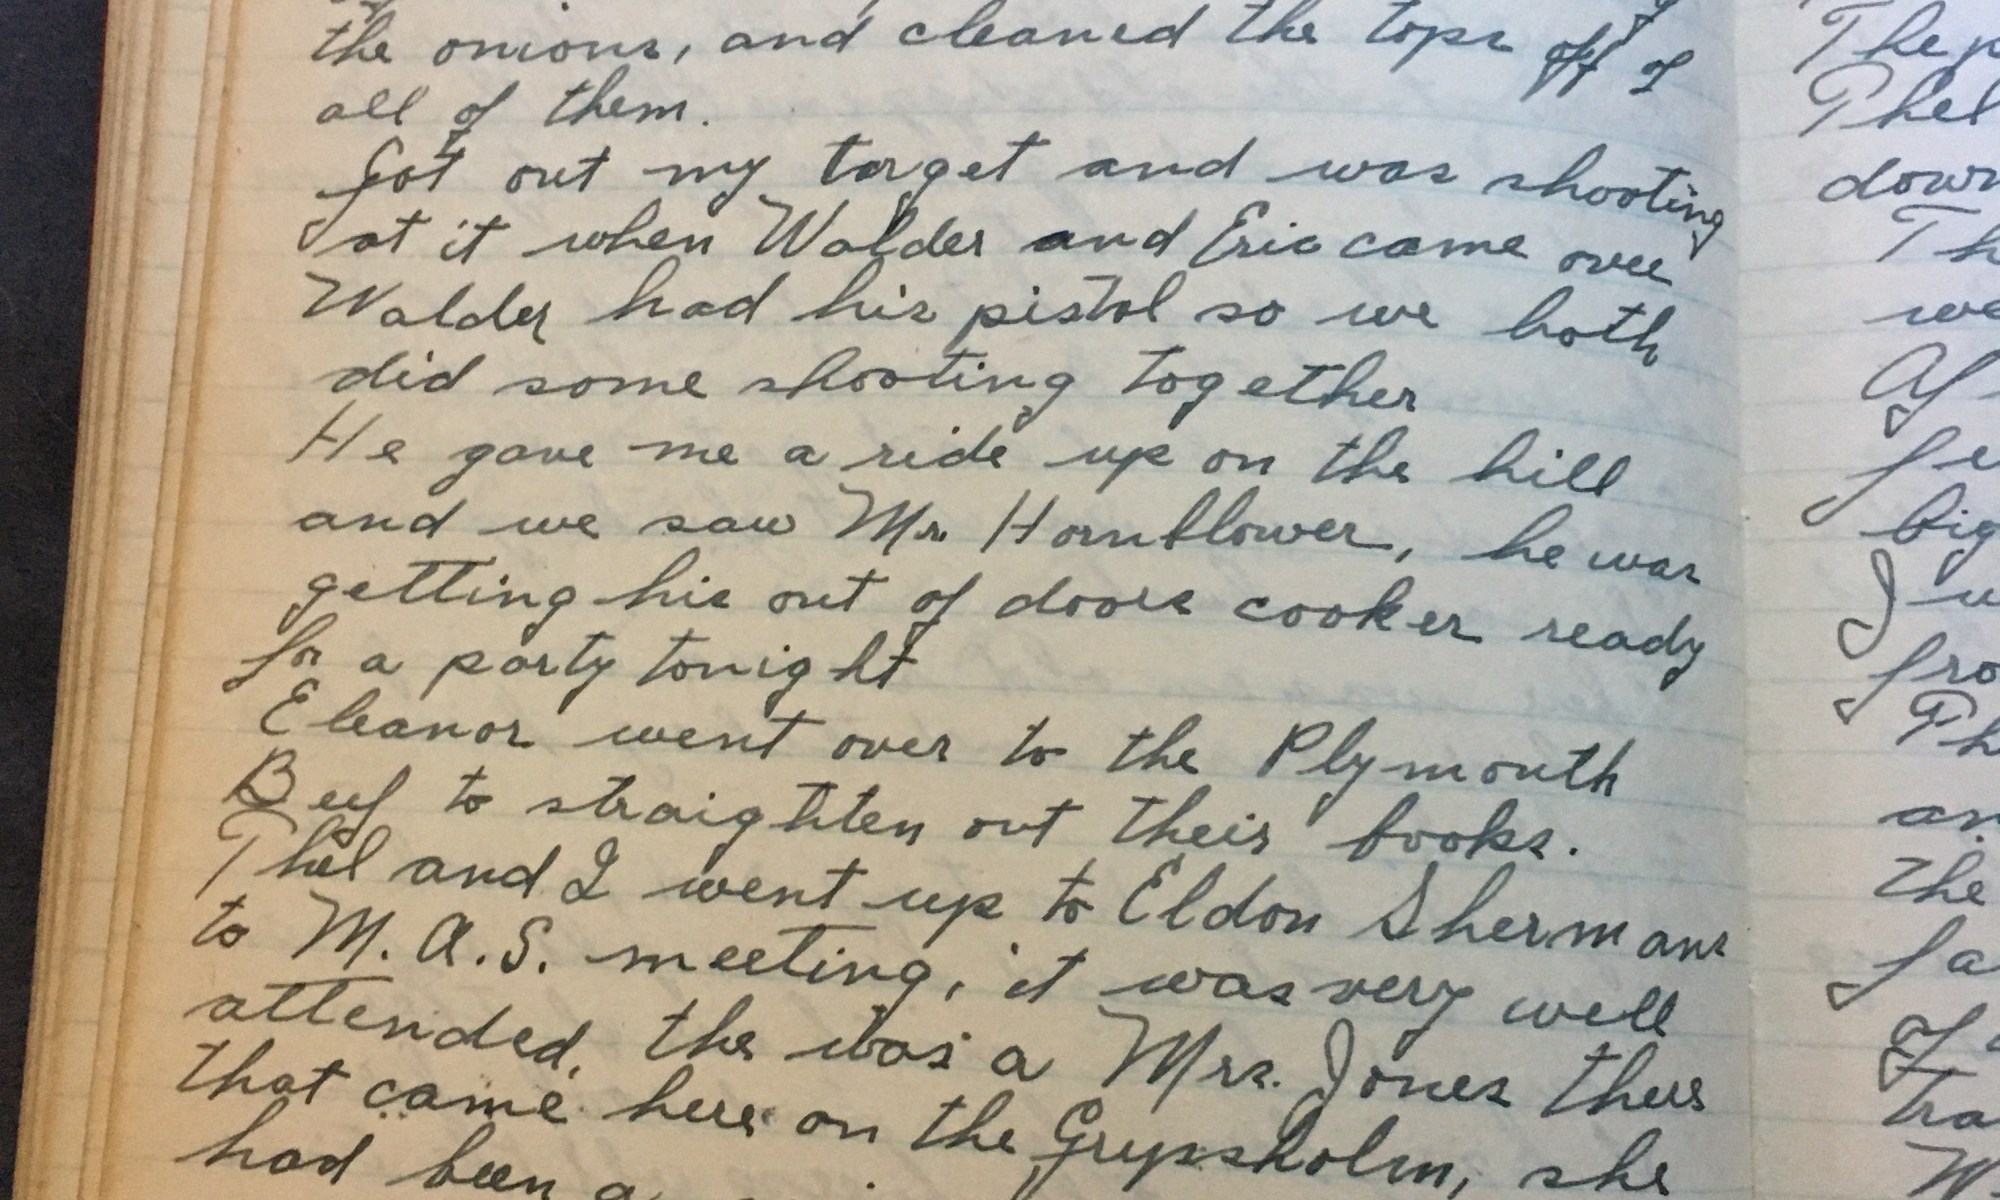 the onions, and cleaned the tops off of
all of them.
Got out my target and was shooting
at it when Walder and Eric came over
Walder had his pistol so we both
did some shooting together
He gave me a ride up on the hill
and we saw Mr. Hornblower, he was
getting his out of doors cooker ready
for a party tonight
Eleanor went over to the Plymouth
Beef to straighten out their books.
Thel and I went up to Eldon Shermans
to M.A.S. meeting, it was very well
attended, the was a Mrs. Jones there
that came here on the Grypsholm, she
had been a
The
Thel
down
Th
we
Af
fe
big
I w
fro
Th
an
the
fa
of
tra
W